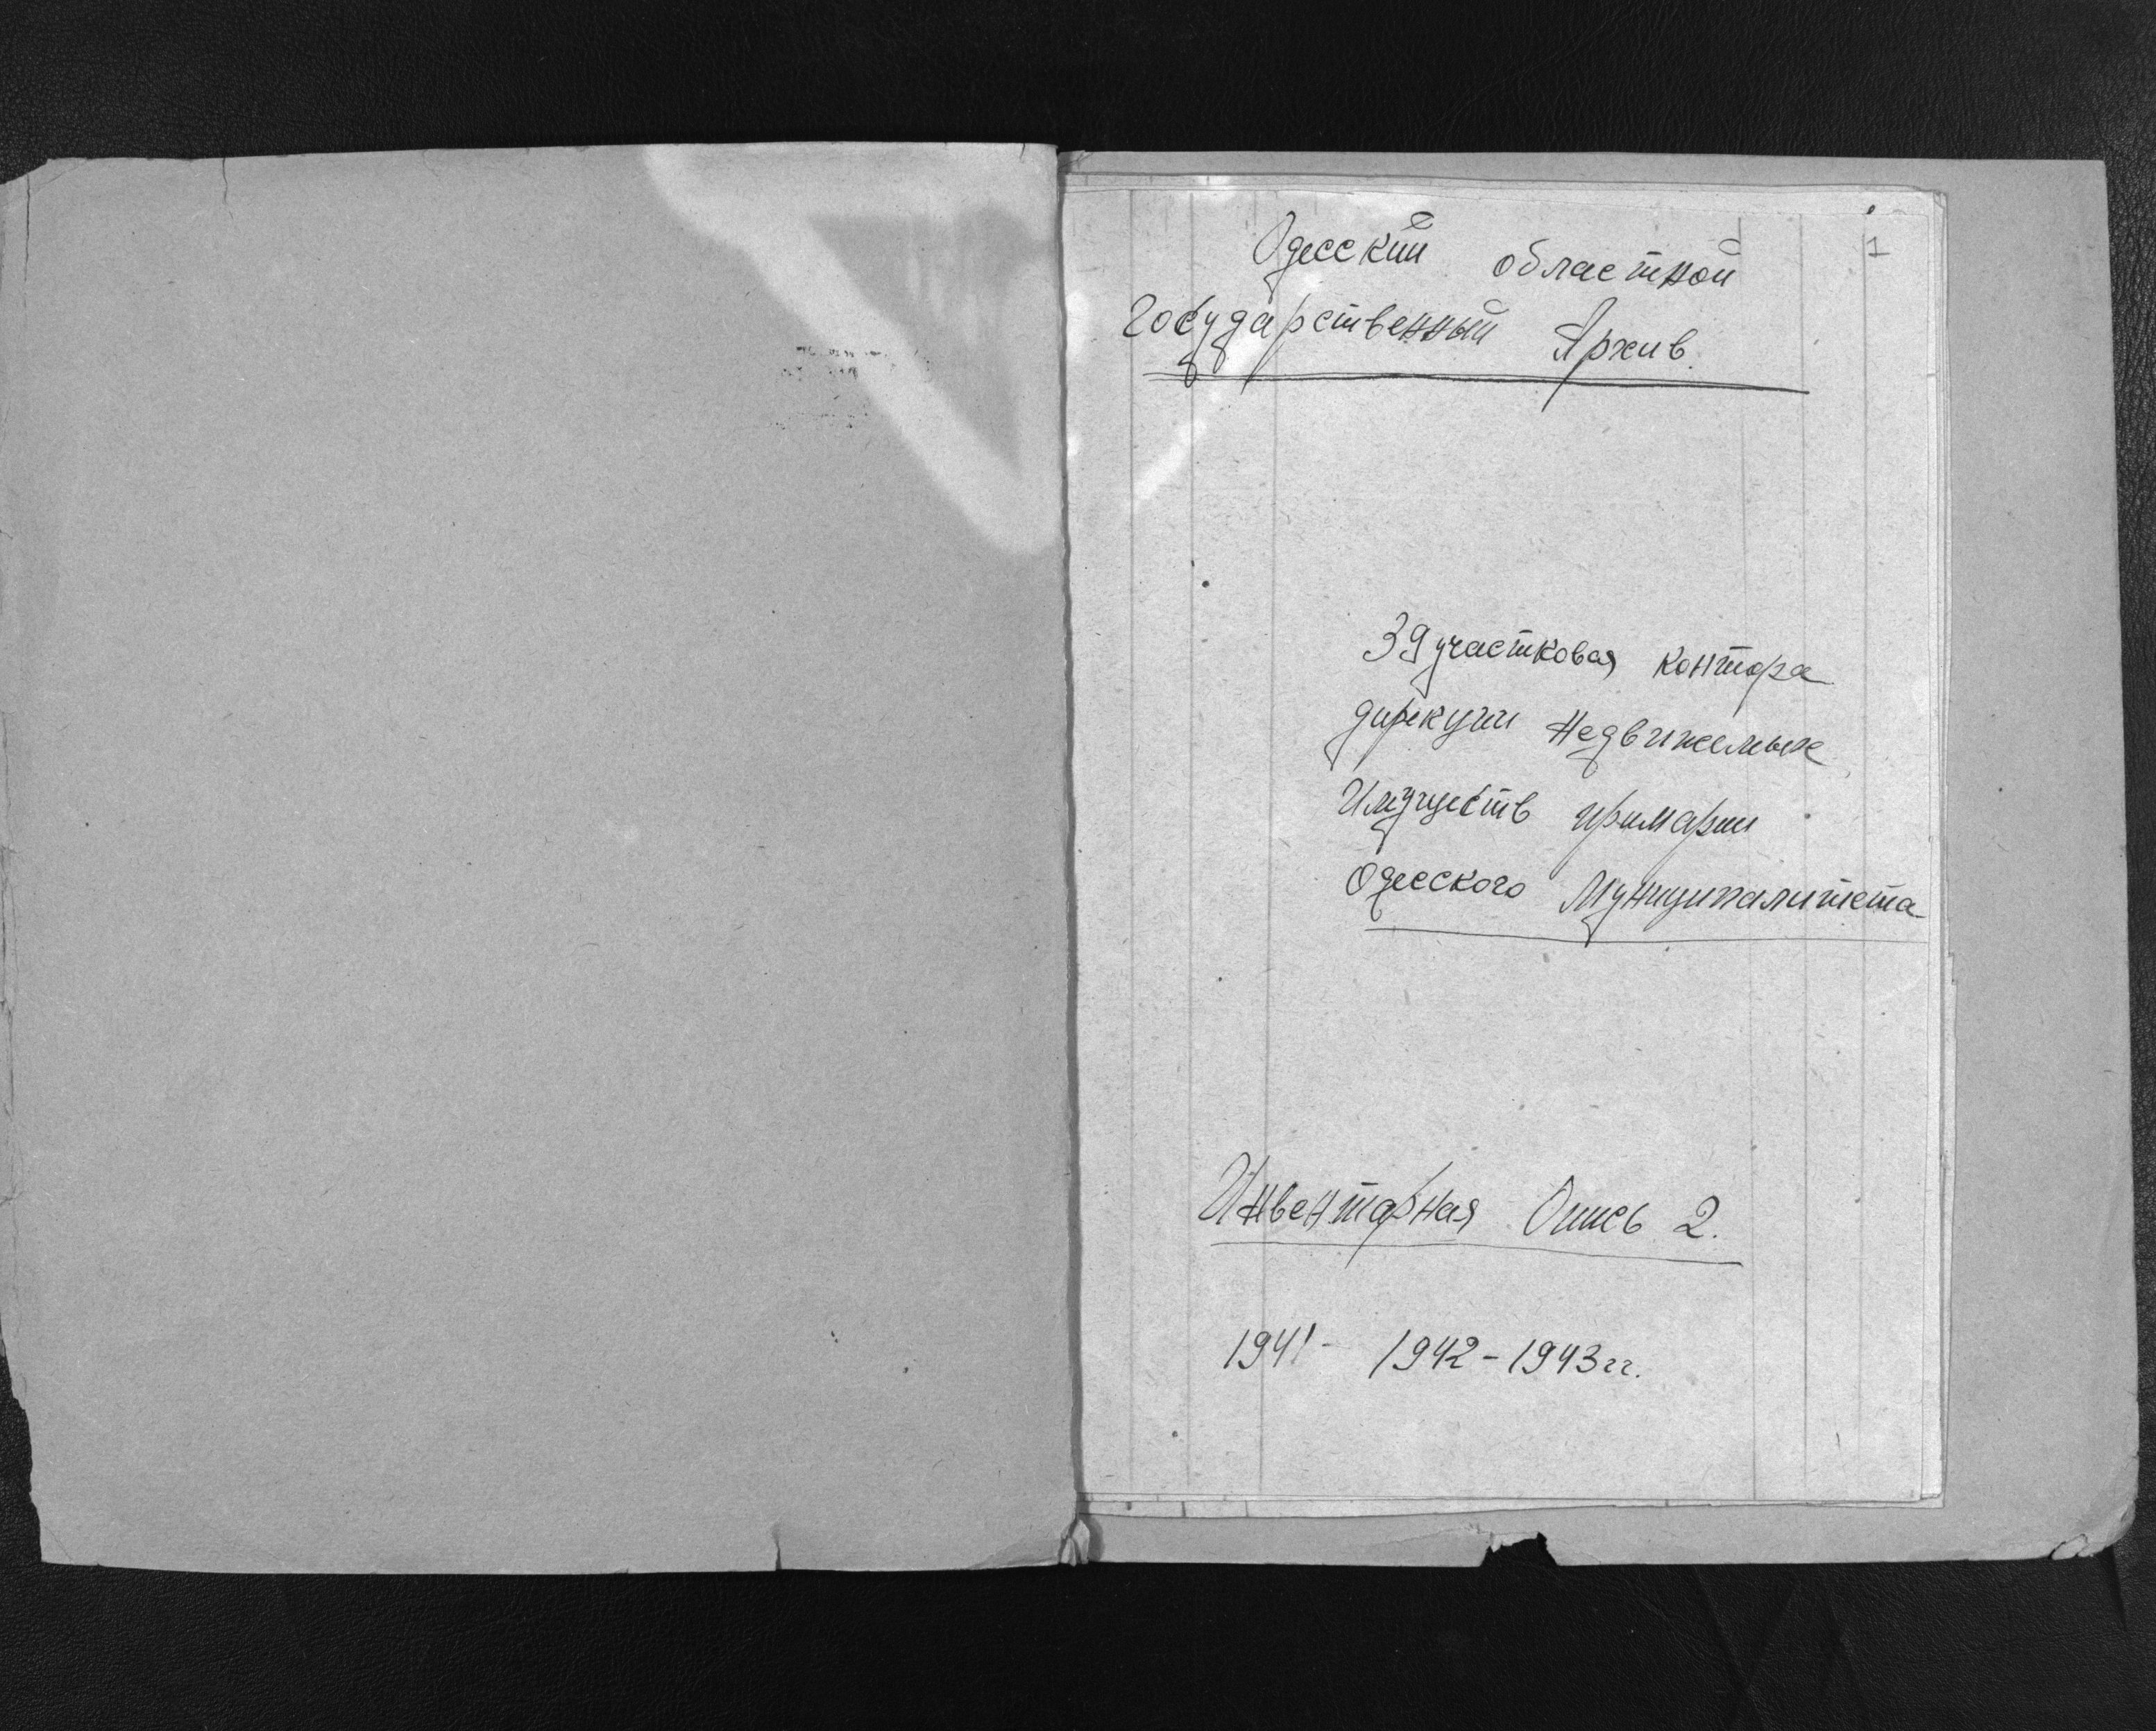 1
Одесский областной
Государственный Архив.
39 участковая контора
дирекции Недвижемых
Имуществ примарии
Одесского Муниципалитета
Инвентарная Опись 2.
1941- 1942-1943 гг.